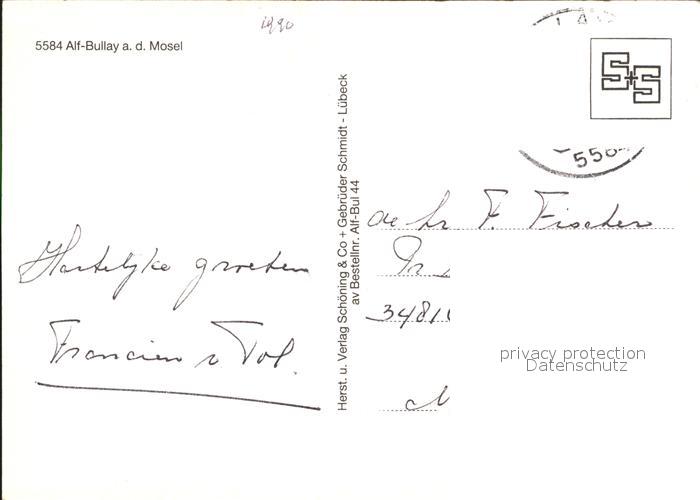 1990
5584 Alf-Bullay a. d. Mosel
S+S
550
Herst. u. Verlag Schöning & Co + Gebrüder Schmidt - Lübeck
av Bestellnr. Alf-Bul 44
de hr F. Fischer
3481
Hartelijke groeten
Francien v Tol.
privacy protection
Datenschutz